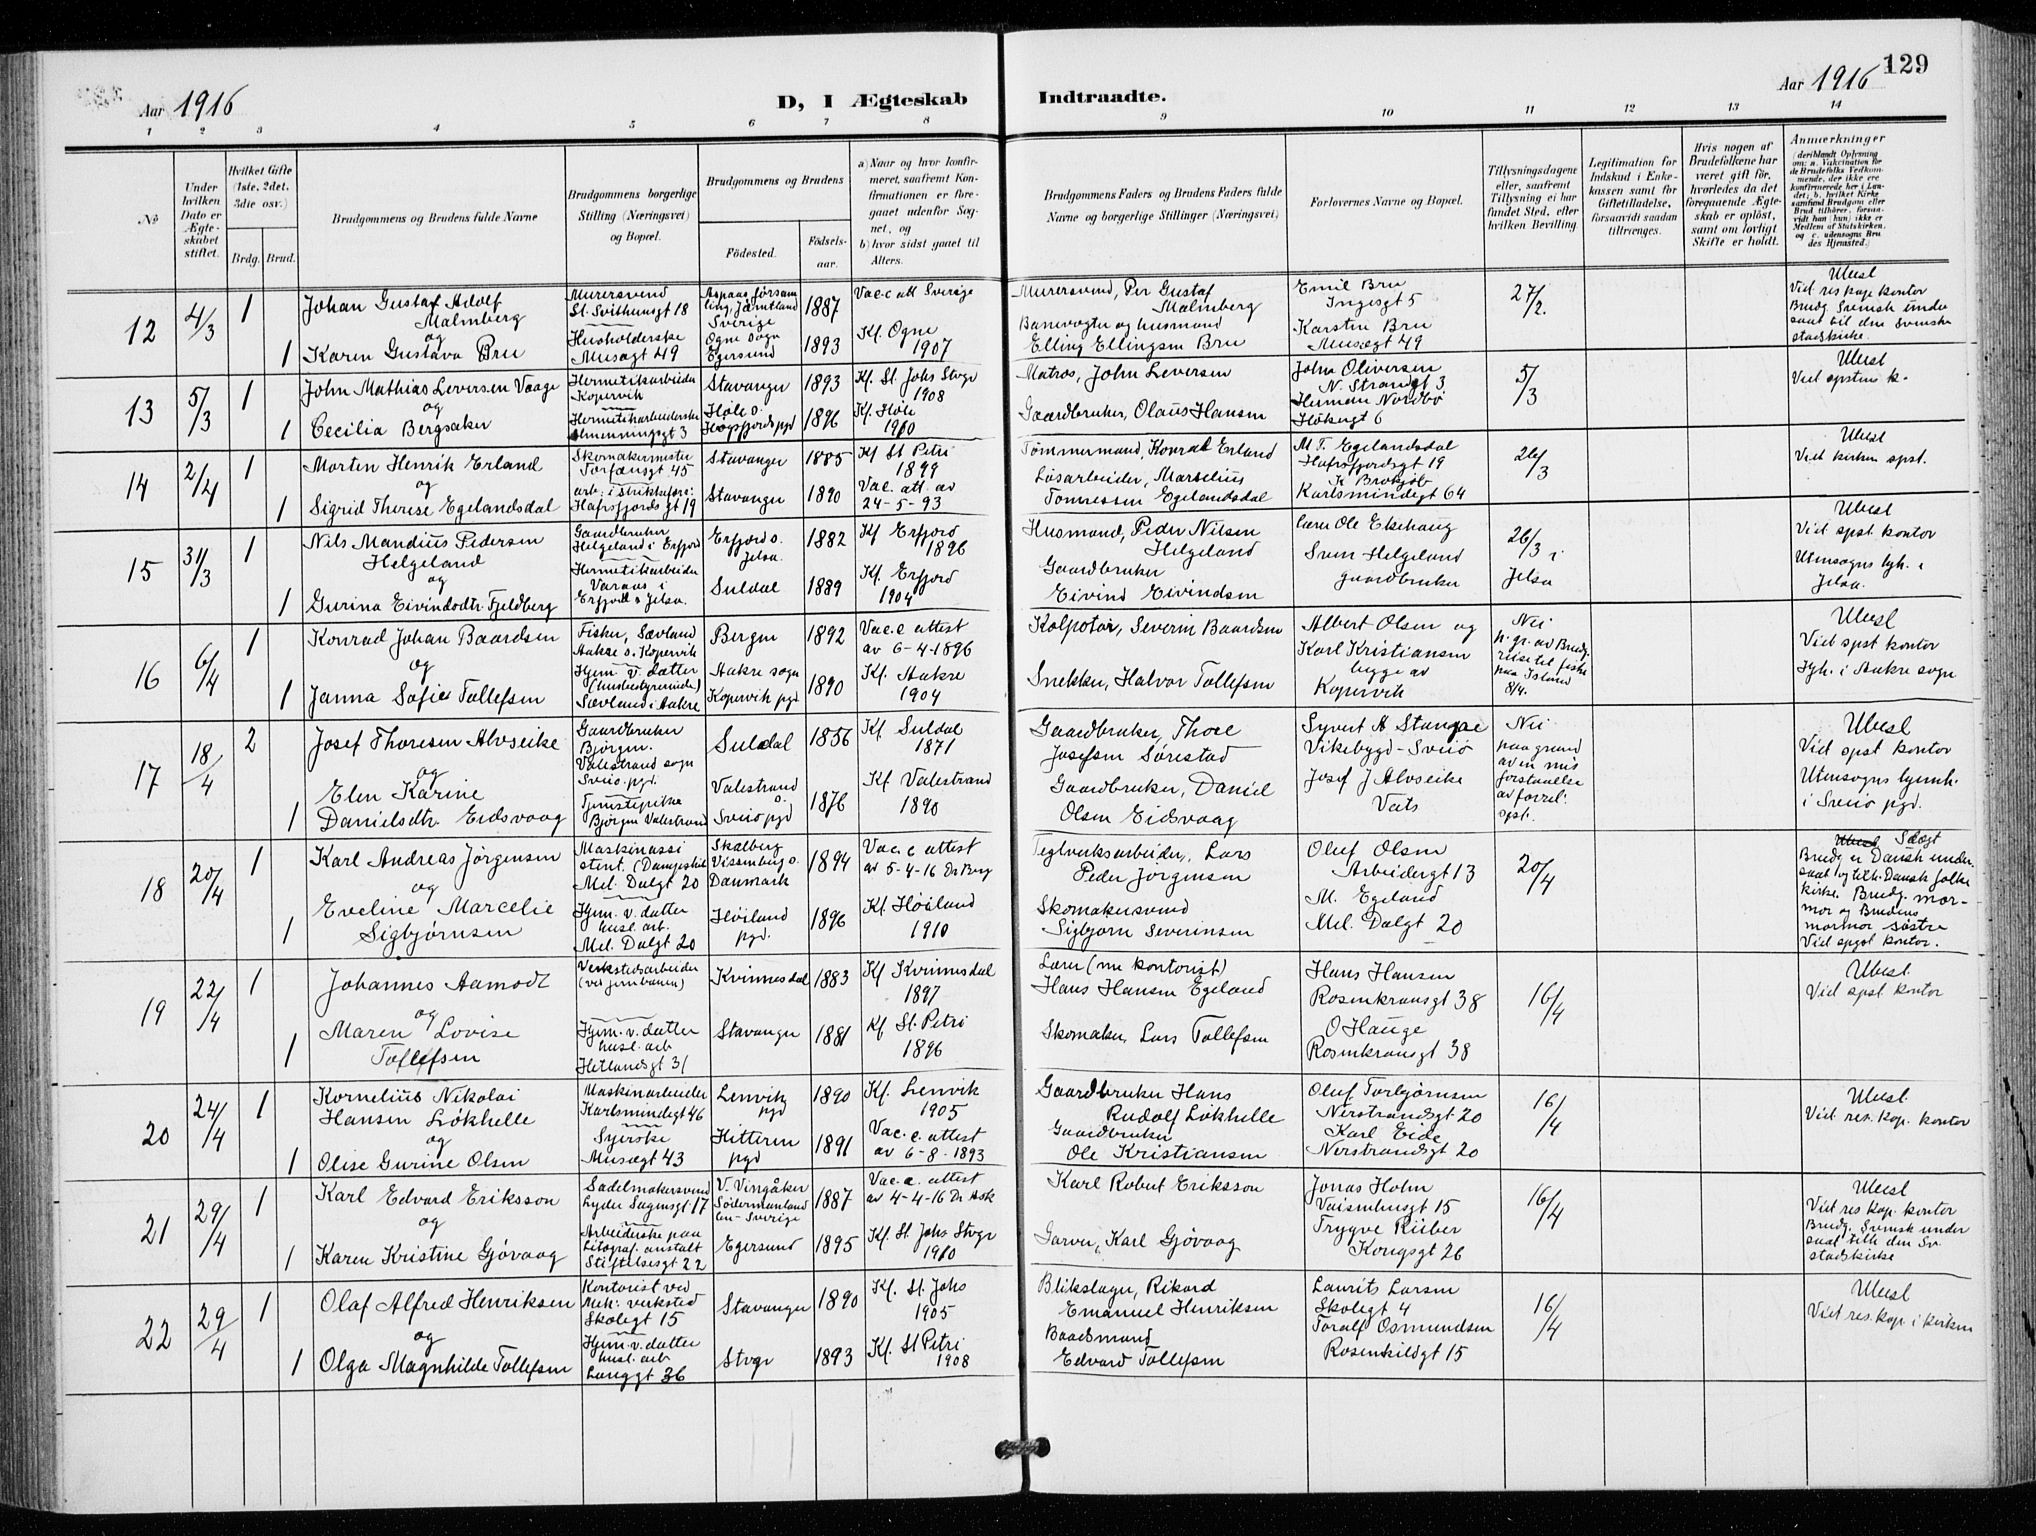 129
Aar 1916
D, I Ægteskab
Indtraadte.
Aar 1916
1 2 3 4 5 6 7 8 9 10 11 12 13 14
No
Under hvilken Dato er Ægteskabet stiftet.
Hvilket Gifte (1ste, 2det, 3die osv.)
Brdg. Brud.
Brudgommens og Brudens fulde Navne
Brudgommens borgerlige Stilling (Næringsvei) og Bopæl.
Brudgommens og Brudens
Födested.
Födselsaar.
a) Naar og hvor konfirmeret, saafremt Konfirmationen er foregaaet udenfor Sognet, og
b) hvor sidst gaaet til Alters.
Brudgommens Faders og Brudens Faders fulde Navne og borgerlige Stillinger (Næringsvei)
Forlovernes Navne og Bopæl.
Tillysningsdagene eller, saafremt Tillysning ei har fundet Sted, efter hvilken Bevilling.
Legitimation for Indskud i Enkekassen samt for Giftetilladelse, forsaavidt saadan tiltrænges.
Hvis nogen af Brudefolkene har været gift för, hvorledes da det foregaaende Ægteskab er oplöst, samt om lovligt Skifte er holdt.
Anmerkninger
(deriblandt Oplysning om: a. Vakcination for de Brudefolks Vedkommende, der ikke ere konfirmerede her i Landet; b. hvilket Kirkesamfund Brudgom eller Brud tilhörer, forsaavidt han (hun) ikke er Medlem af Statskirken, og c. udensogns Brudes Hjemsted.)
12
4/3
1
Johan Gustaf Adolf
Malmberg
og
1 Karen Gustava Bru
Murersvend
St. Svithunsgt 18
Husholderske
Musegt 49
Aspaas försam
ling, Jämtland
Sverige
Ogne sogn
Egersund
1887
1893
Vac. c att Sverige
Kf. Ogne
1907
Murersvend, Per Gustaf
Malmberg
Banevogter og husmand
Elling Ellingsen Bru
Emil Bru
Ingesgt 5
Karsten Bru
Musegt 49
27/2.
Ubesl
Vid res kap kontor
Brudg. Svensk under
saat til den svenske
statskirke.
13
5/3
1
John Mathias Leversen Vaage
og
1 Cecilia Bergsaker
Hermetikarbeider
Kopervik
Hermetikarbeiderske
Almenningsgt 3
Stavanger
Høle s.
Høgsfjords pgd
1893
1896
Kf. St. Johs Stvgr
1908
Kf. Høle
1910
Matros, John Leversen
Gaardbruker, Olaus Hansen
John Oliversen
N. Strandgt 3
Herman Nordbö
Hökergt 6
5/3
Ubesl
Vid spsten k.
14
2/4
1
Morten Henrik Erland
og
1 Sigrid Therese Egelandsdal
Skomakermester
Torfæusgt. 45
Hafrsfjords gt 19
Stavanger
Stavanger
1885
1890
Kf St Petri
1899
Vac. att. av
24-5-93
Tømmermand, Konrad Erland
Løsarbeider, Marselius
Tønnessen Egelandsdal
M. T. Egelandsdal
Hafrsfjordsgt 19
Karlsmindegt 64
26/3
Ubesl
Vid kirken spst.
15
31/3
1
Nils Mandius Pedersen
Helgeland
og
1 Gurina Eivindsdtr. Fjeldberg
Gaardbruker
Helgeland i Erfjord
Hermetikarbeider
Varaas i
Erfjord s Jelsa.
Erfjord s.
Jelsa.
Suldal
1882
1889
Kf Erfjord
1896
Kf. Erfjord
1904
Husmand, Peder Nilsen
Helgeland
Gaardbruker
Eivind Eivindsen
Lærer Ole Ekehaug
Sven Helgeland
gaardbruker
26/3 i
Jelsa
Ubesl
Vid spst kontor
Utensogns lyh. i
Jelsa.
16
6/4
1
Konrad Johan Baardsen
og
1 Janna Sofie Tollefsen
Fisker, Sævland
Aakre s. Kopervik
Hjem. v. datter
(husbestyrerinde)
Sævland i Aakre
Bergen
Aakre sogn
Kopervik pgd
1892
1890
Vac. c attest
av 6-4-1896
Kf. Aakre
1904
Kolportør, Severin Baardsen
Snekker, Halvor Tollefsen
Albert Olsen og
Karl Kristiansen
begge av
Kopervik
Nei
p. gr. av Brudg.
reise til fiske
paa Island
8/4.
Ubesl
Vid spst kontor
lyh. i Aakre sogn
17
18/4
2
Josef Thoresen Alvseike
og
Elen Karine
1 Danielsdtr. Eidsvaag
Gaardbruker
Björgen.
Valestrand sogn
Sveio. pgd.
Tjenestepike
Björgen Valestrand
Suldal
Valestrand
Sveio pgd
1856
1876
Kf. Suldal
1871
Kf Valestrand
1890
Gaardbruker, Thore
Josefsen Sørestad
Gaardbruker, Daniel
Olsen Eidsvaag
Syvert A Stangne
Vikebygd - Sveiö
Josef J Alvseike
Vats
Nei
paa grund
av en mis
forstaaelse
av forrel:
spst.
Ubesl
Vid spst kontor
Utensogns lysnh.
i Sveio pgd.
18
20/4
1
Karl Andreas Jørgensen
og
Eveline Marcelie
1 Sigbjørnsen
Maskinassi
stent. (Dampskib
Mel. Dalgt 20
Hjem. v. datter
husl. arb.
Mel. Dalgt 20
Skalberg
Vissenberg s.
Danmark
Høiland
pgd.
1894
1896
Vac. c attest
av 5-4-16 Dr Berg
Kf. Höiland
1910
Teglverksarbeider, Lars
Peder Jørgensen
Skomakersvend
Sigbjørn Severinsen
Oluf Olsen
Arbeidergt 13
M. Egeland
Mel. Dalgt 20
20/4
Ubesl Slægt
Brudg. er Dansk under
saat og tilh. Dansk folke
kirke. Brudg. mor-
mor og Brudens
mormor søstre
Vid spst kontor.
19
22/4
1
Johannes Aamodt
og
Maren Lovise
1 Tollefsen
Verkstedsarbeider
(ved jernbanen)
Hjem. v. datter
husl. arb
Hetlandsgt 31
Kvinnesdal
Stavanger
1883
1881
Kf Kvinnesdal
1897
Kf St. Petri
1896
Lærer (nu kontorist)
Hans Hansen Egeland
Skomaker, Lars Tollefsen
Hans Hansen
Rosenkransgt 38
O Hauge
Rosenkransgt 38
16/4
Ubesl
Vid spst kontor
20
24/4
1
Kornelius Nikolai
Hansen Løkhelle
og
1 Olise Gurine Olsen
Maskinarbeider
Karlsmindegt 46
Syerske
Musegt 43
Lenvik
pgd
Hitteren
pgd
1890
1891
Kf. Lenvik
1905
Vac. c. attest
av 6-8-1893
Gaardbruker Hans
Rudolf Løkhelle
Gaardbruker
Ole Kristiansen
Oluf Torbjørnsen
Nerstrandsgt 20
Karl Eide
Nerstrandsgt 20
16/4
Ubesl
Vid res. kap. kontor
21
29/4
1
Karl Edvard Eriksson
og
1 Karen Kristine Gjøvaag
Sadelmakersvend
Lyder Sagensgt 17
Arbeiderske paa
Litograf. anstalt
Stiftelsesgt 22
V. Vingåker
Södermanland
len - Sverige
Egersund
1887
1895
Vac. a. attest
av 4-4-16 Dr Ask
Kf. St Johs Stvgr
1910
Karl Robert Eriksson
Garver, Karl Gjøvaag
Jonas Holm
Vaisenhusgt 15
Trygve Riiber
Kongsgt 26
16/4
Ubesl
Vid res kap. kontor
Brudg. Svensk under
saat tilh den Sv.
statskirke
22
29/4
1
Olaf Alfred Henriksen
og
1 Olga Magnhilde Tollefsen
Kontorist ved
mek: verksted
Skolegt 15
Hjem. v. datter
husl. arb
Langgt 36
Stavanger
Stvgr
1890
1893
Kf. St. Johs
1905
Kf. St Petri
1908
Blikslager, Rikard
Emanuel Henriksen
Baadsmand
Edvard Tollefsen
Laurits Larsen
Skolegt 4
Toralf Osmundsen
Rosenkildgt 15
16/4
Ubesl
Vid res. kap. i kirken